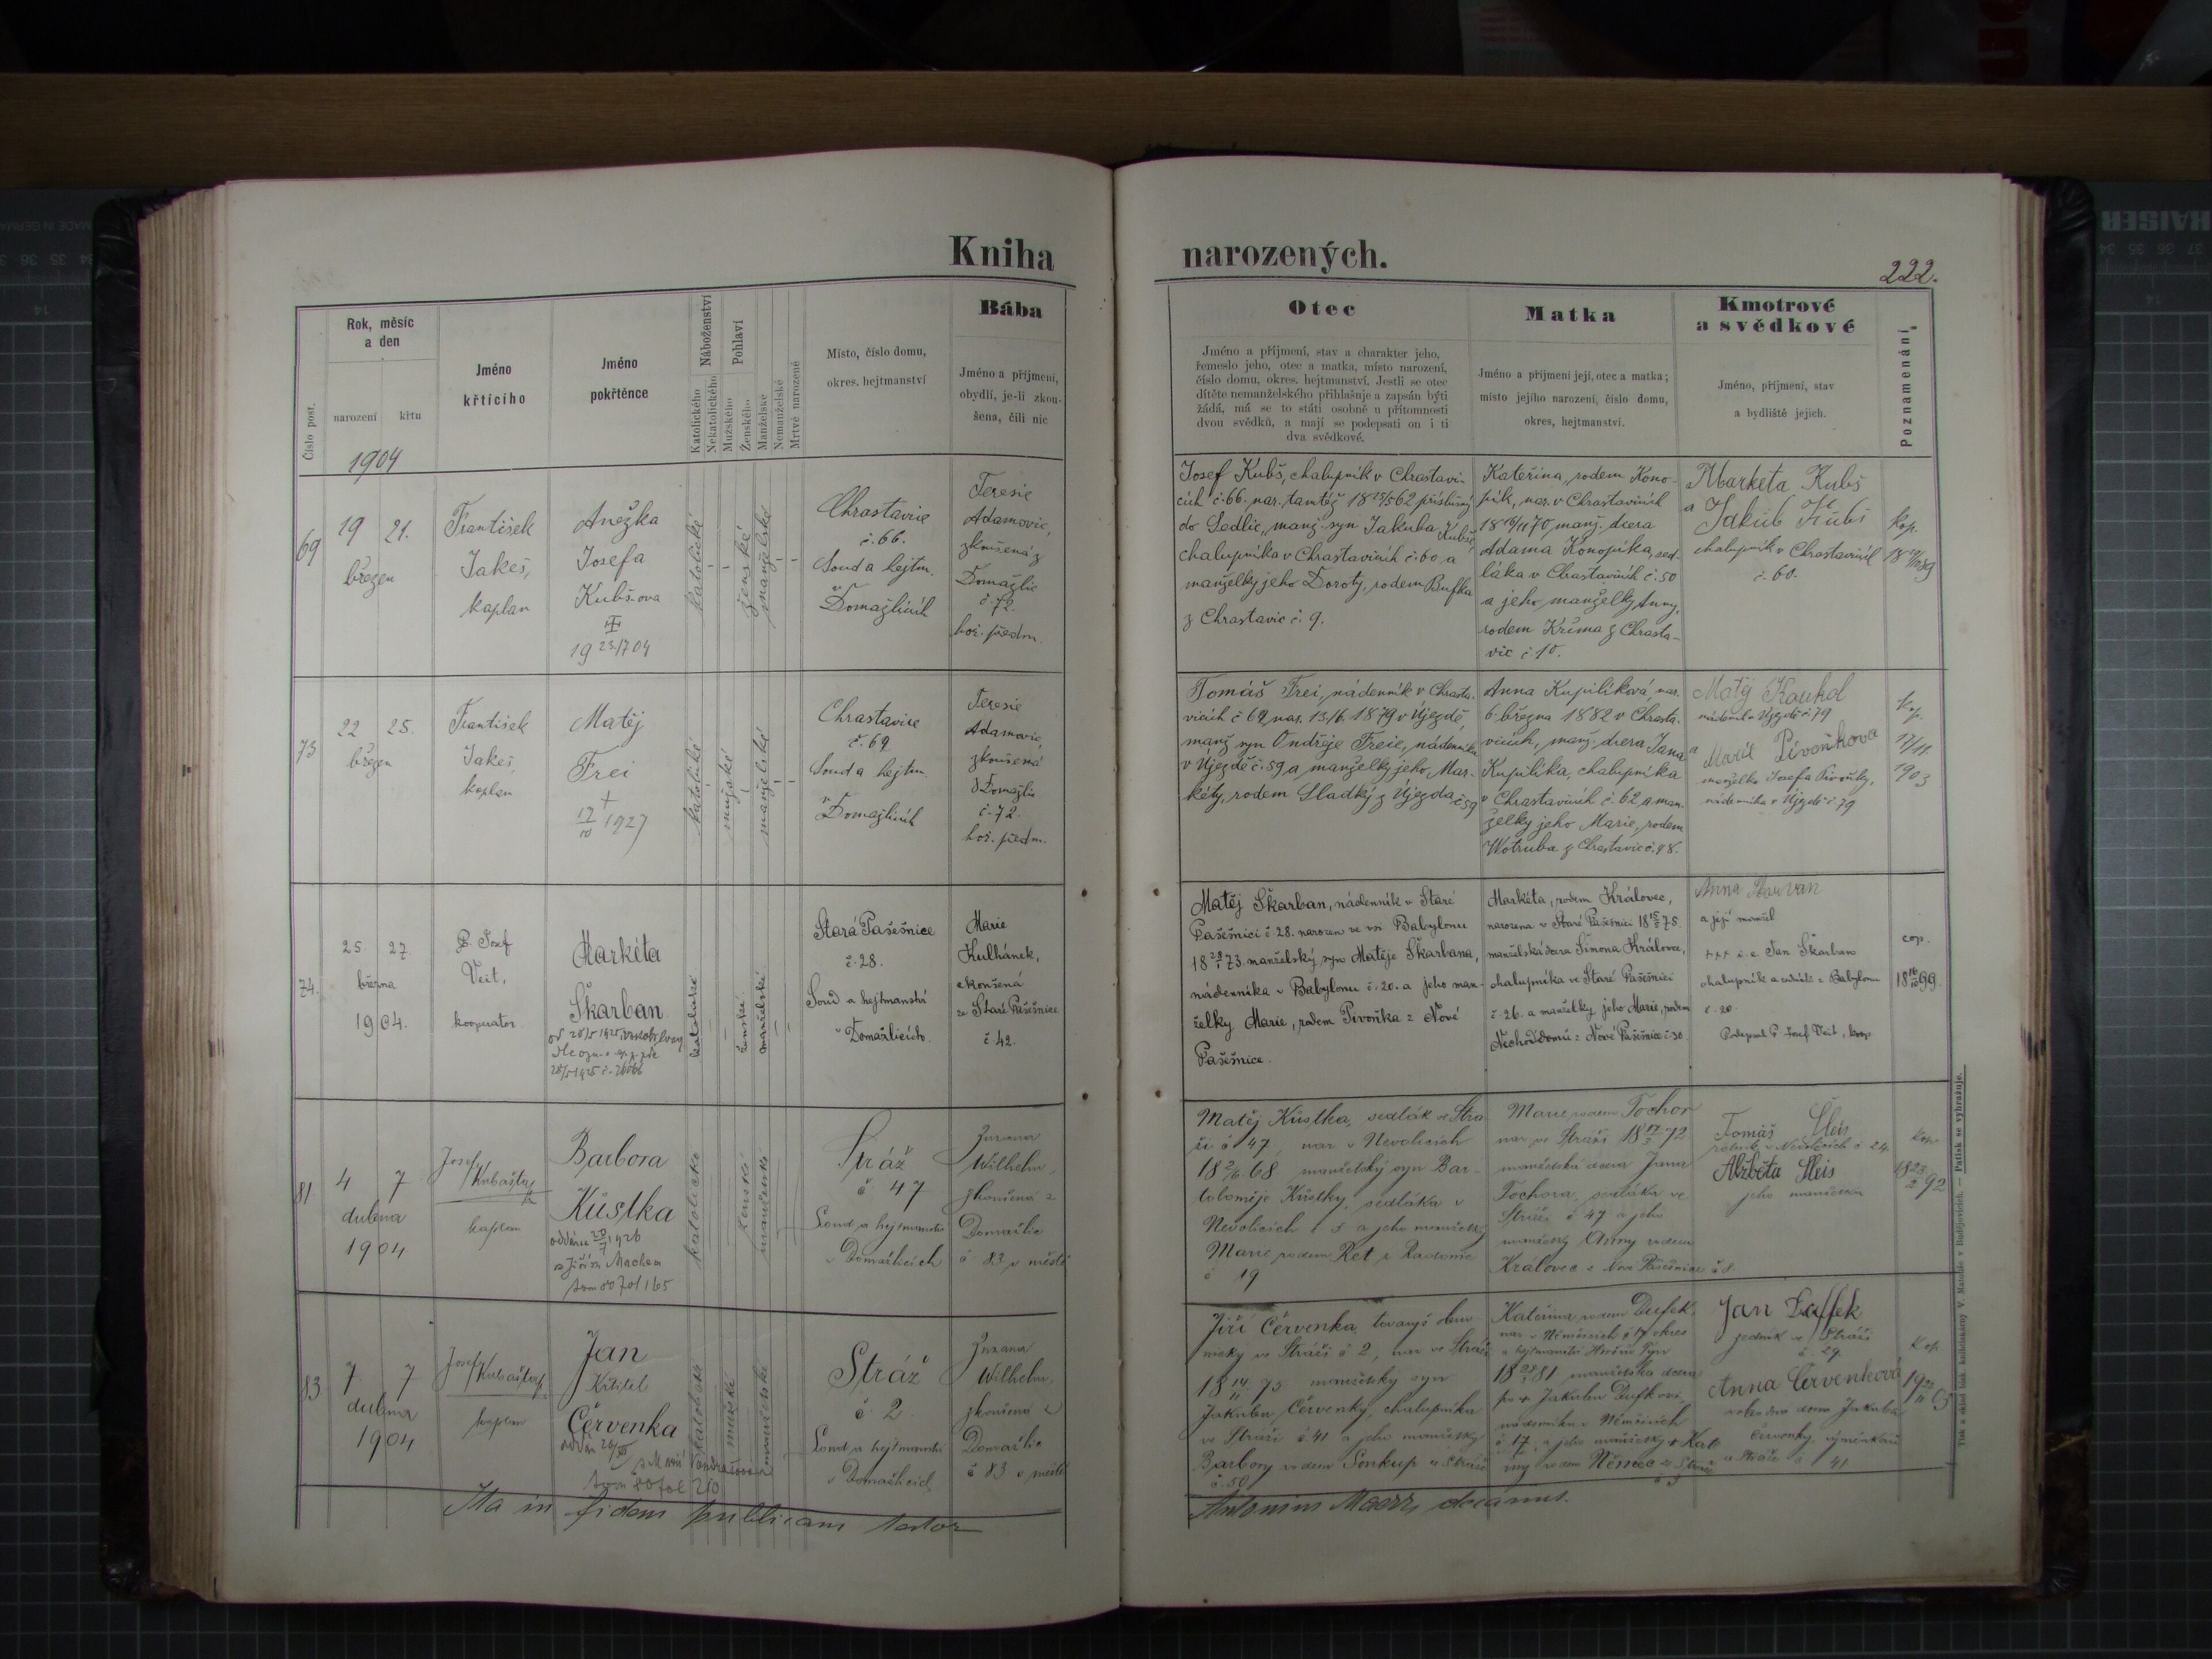 Kniha
narozených.
222.
Číslo post.
Rok, měsíc
a den
narození
křtu
1904
Jméno
křtícího
Jméno
pokřtěnce
Náboženství
Katolického
Nekatolického
Pohlaví
Mužského
Ženského
Manželské
Nemanželské
Mrtvé narozené
Místo, číslo domu,
okres. hejtmanství
Bába
Jméno a příjmení,
obydlí, je-li zkou-
šena, čili nic
Otec
Jméno a příjmení, stav a charakter jeho,
řemeslo jeho, otec a matka, místo narození,
číslo domu, okres. hejtmanství. Jestli se otec
dítěte nemanželského přihlašuje a zapsán býti
žádá, má se to státi osobně u přítomnosti
dvou svědků, a mají se podepsati on i ti
dva svědkové.
Matka
Jméno a příjmení její, otec a matka;
místo jejího narození, číslo domu,
okres, hejtmanství.
Kmotrové
a svědkové
Jméno, příjmení, stav
a bydliště jejich.
Poznamenání
69
19 21.
březen
František
Jakeš,
kaplan
Anežka
Josefa
Kubš-ova
19 23./7 04
katolické
ženské
manželské
Chrastavice
č. 66.
Soud a hejtm.
v Domažlicích
Teresie
Adamovic,
zkoušená z
Domažlic
č. 72.
hoř. předm.
Josef Kubš, chalupník v Chrastavi-
cích č. 66. nar. tamtéž 18 25/5 62 příslušný
do Sedlic, manž. syn Jakuba Kubše,
chalupníka v Chrastavicích č. 60 a
manželky jeho Doroty, rodem Bufka
z Chrastavic č. 9.
Kateřina, rodem Kono-
pík, nar. v Chrastavicích
70, manž. dcera
Adama Konopíka, sed-
láka v Chrastavicích č. 50
a jeho manželky Anny,
rodem Kříma z Chrasta-
vic č. 10.
Marketa Kubš
a Jakub Kubš
chalupník v Chrastavicích
č. 60.
kop.
73
22 25.
březen
František
Jakeš
kaplan
Matěj
Frei
†
17/10 1927
katolické
mužské
manželské
Chrastavice
č. 69
Soud a hejtm.
v Domažlicích
Teresie
Adamovic,
zkoušená
z Domažlic
č. 72.
hoř. předm.
Tomáš Frei, nádenník v Chrasta-
vicích č. 69, nar. 13/6. 1879 v Újezdě,
manž. syn Ondřeje Freie, nádenníka
v Újezdě č. 59 a manželky jeho Mar-
kéty, rodem Sladký z Újezda č. 59
Anna Kupilíková, nar.
6. března 1882 v Chrasta-
vicích, manž. dcera Jana
Kupilíka, chalupníka
v Chrastavicích č. 62 a man-
želky jeho Marie, rodem
Wotruba z Chrastavic č. 48.
Matěj Kouhol
nádenník v Újezdě č. 79
a Marie Pivoňkova
manželka Josefa Pivoňky,
nádenníka v Újezdě č. 79
kop.
17/11.
1903
74.
25. 27.
března
1904.
P. Josef
Veit,
kooperator
Markéta
Škarban
28/5 1925
katolické
ženské
manželské
Stará Pašešnice
č. 28.
Soud a hejtmanství
v Domažlicích.
Marie
Kulhánek,
zkoušená
ze Staré Pašešnice
č. 42.
Matěj Škarban, nádenník v Staré
Pašešnici č. 28. narozen ve vsi Babylonu
73. manželský syn Matěje Škarbana,
nádenníka v Babylonu č. 20. a jeho man-
želky Marie, rodem Pivoňka z Nové
Pašešnice.
Markéta, rodem Královec,
narozena v Staré Pašešnici 18 15/5 75.
manželská dcera Šimona Královce,
chalupníka ve Staré Pašešnici
č. 26. a manželky jeho Marie, rodem
z Nové Pašešnice č. 30.
Anna
a její manžel
+++ Jan Škarban
chalupník a z Babylonu
č. 20.
Podepsal P. Josef Veit, koop.
cop.
18 16/10 99.
81
4 7
dubna
1904
Josef
kaplan
Barbora
Küstka
1926
s Jiřím Machem
tom 80 fol 165
katolické
ženské
manželské
Stráž
č 47
Soud a hejtmanství
v Domažlicích
Zuzana
Wilhelm,
zkoušená z
Domažlic
č 83 v městě
Matěj Küstka, sedlák ve Strá-
ži č 47, nar v Nevolicích
68, manželský syn Bar-
toloměje Küstky, sedláka v
Nevolicích č 5 a jeho manželky
Marie rodem Ret z Radonic
č 19
Marie rodem Tochor
nar. ve Stráži 72
manželská dcera Jana
Tochora, sedláka ve
Stráži č 47 a jeho
manželky Anny rodem
Královec z Nové Pašešnice č 8.
Tomáš Sleis
v Nevolicích č 24.
Alžběta Sleis
jeho manželka
kop
18 23/2 92
83
7 7
dubna
1904
Josef
kaplan
Jan
Křtitel
Červenka
tom 80 fol 210
katolické
mužské
manželské
Stráž
č 2
Soud a hejtmanství
v Domažlicích
Zuzana
Wilhelm,
zkoušená z
Domažlic
č 83 v městě
Jiří Červenka, tovaryš
ve Stráži č 2, nar ve Stráži
75 manželský syn
Jakuba Červenky, chalupníka
ve Stráži č 41 a jeho manželky
Barbory rodem Sonkup z Stráže
č. 50
Kateřina rodem Dufek,
nar. v Němčicích č 17 okres
a hejtmanství Horšův Týn
81 manželská dcera
po + Jakubu Dufkovi,
nádenníku v Němčicích
č 17, a jeho manželky + Kate-
řiny rodem Němec ze Stráže
Jan Duffek
ve Stráži
č. 29.
Anna Červenková
dcera Jakuba
Červenky, výměnkáře
ze Stráže č 41
kop.
Ita in fidem publicam testor
Antonius Maerz, decanus.
Tisk a sklad knih. knihtiskárny V. Matouše v Budějovicích. — Patisk se vyhražuje.
MADE IN GERMA
KAISER